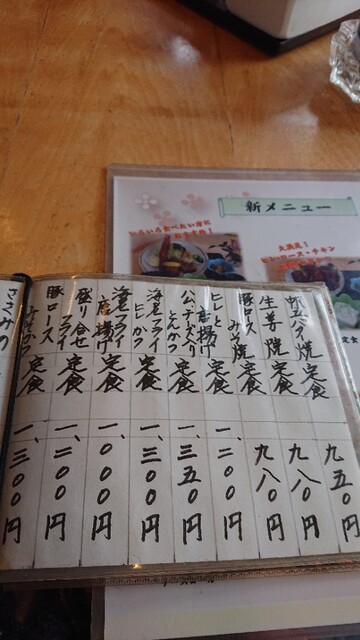 新メニュー
いろいろ食べたい方に
おすすめ！
大満足！
ヒレ・ロース・チキン
定食
バタ焼定食 九五〇円
生姜焼定食 九八〇円
豚ロースみそ焼定食 九八〇円
ヒレと唐揚げ定食 一、二〇〇円
ハム、チーズ入りとんかつ定食 一、三五〇円
海老フライヒレかつ定食 一、三〇〇円
海老フライ唐揚げ定食 一、〇〇〇円
盛り合せフライ定食 一、二〇〇円
豚ロースみそかつ定食 一、三〇〇円
ささみの